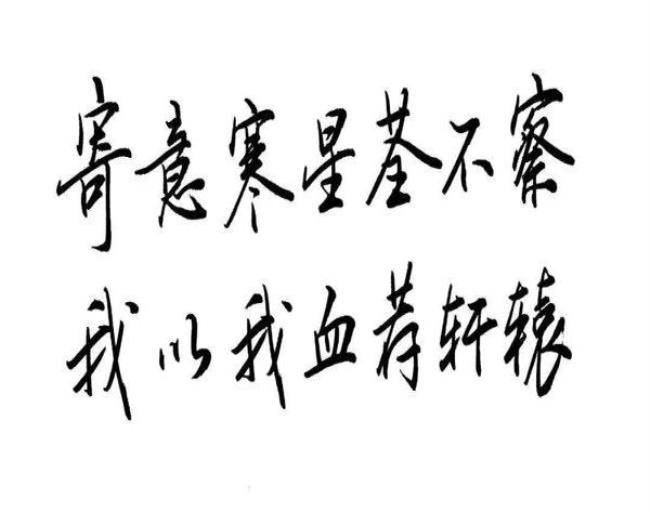 寄意寒星荃不察
我以我血荐轩辕